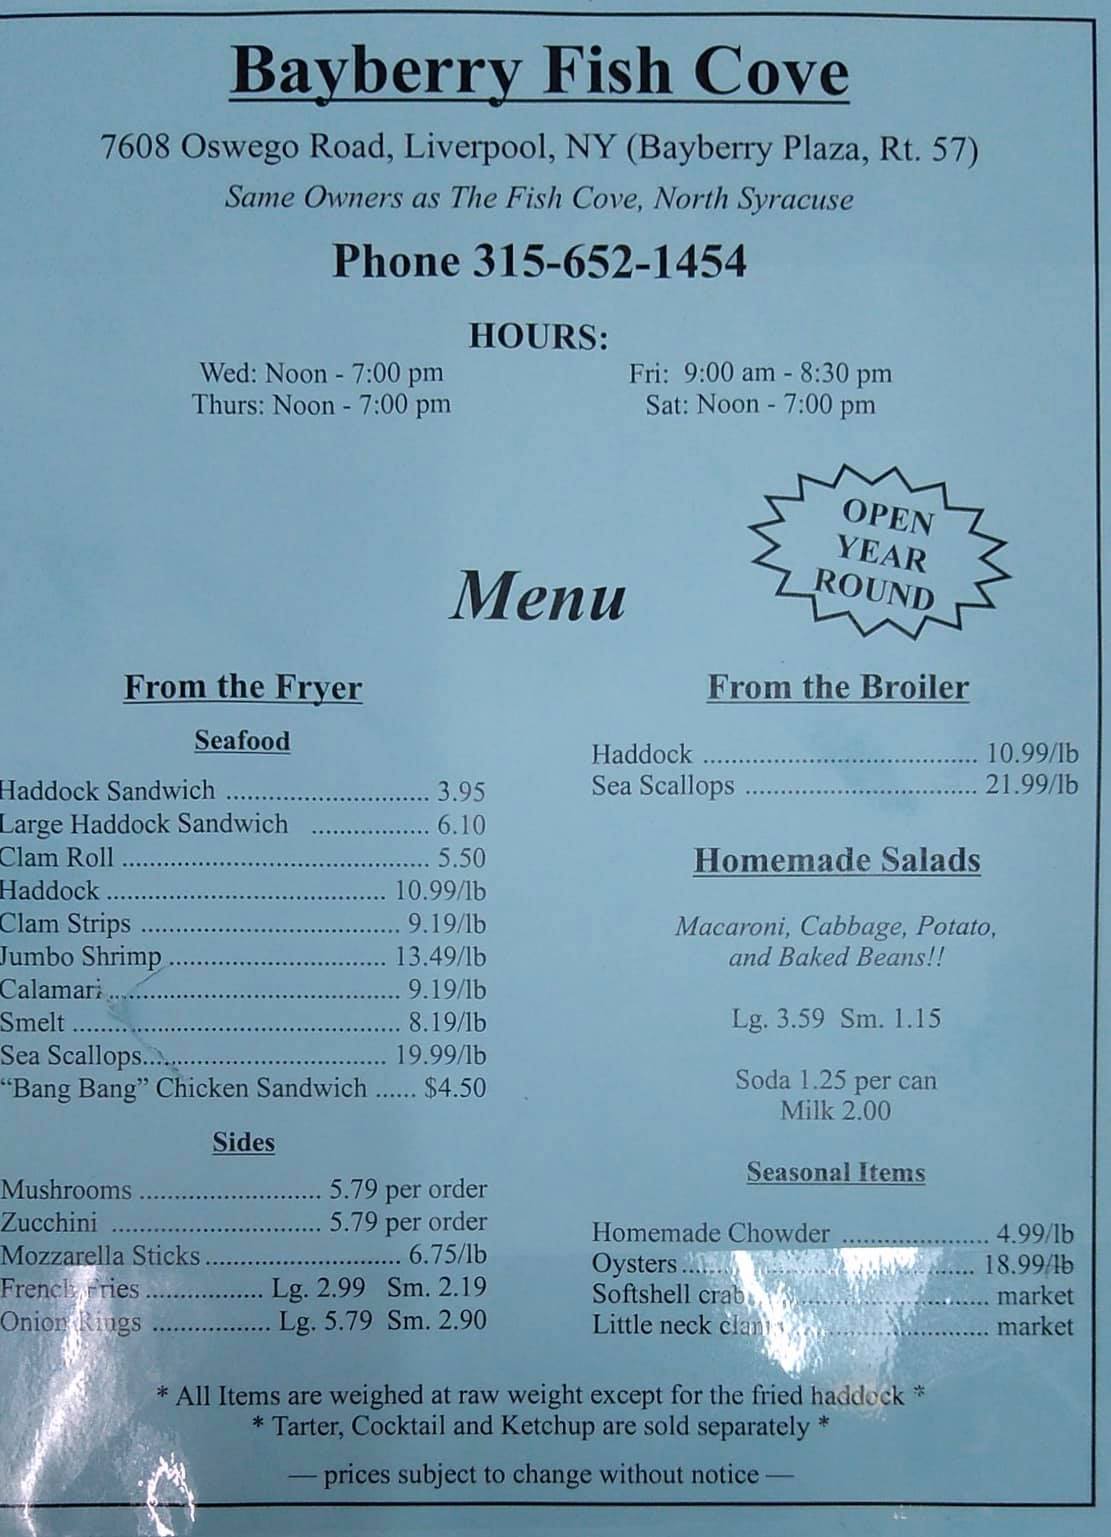 Bayberry Fish Cove
7608 Oswego Road, Liverpool, NY (Bayberry Plaza, Rt. 57)
Same Owners as The Fish Cove, North Syracuse
Phone 315-652-1454
HOURS:
Wed: Noon - 7:00 pm
Thurs: Noon - 7:00 pm
Fri: 9:00 am - 8:30 pm
Sat: Noon - 7:00 pm
OPEN
YEAR
ROUND
Menu
From the Fryer
Seafood
Haddock Sandwich ............................. 3.95
Large Haddock Sandwich ................. 6.10
Clam Roll ............................................ 5.50
Haddock ........................................ 10.99/lb
Clam Strips ..................................... 9.19/lb
Jumbo Shrimp ............................... 13.49/lb
Calamari .......................................... 9.19/lb
Smelt ............................................... 8.19/lb
Sea Scallops................................... 19.99/lb
“Bang Bang” Chicken Sandwich ...... $4.50
Sides
Mushrooms .......................... 5.79 per order
Zucchini .............................. 5.79 per order
Mozzarella Sticks............................ 6.75/lb
French Fries ................. Lg. 2.99 Sm. 2.19
Onion Rings ................. Lg. 5.79 Sm. 2.90
From the Broiler
Haddock ....................................... 10.99/lb
Sea Scallops ................................. 21.99/lb
Homemade Salads
Macaroni, Cabbage, Potato,
and Baked Beans!!
Lg. 3.59 Sm. 1.15
Soda 1.25 per can
Milk 2.00
Seasonal Items
Homemade Chowder ..................... 4.99/lb
Oysters.......................................... 18.99/lb
Softshell crab ................................. market
Little neck clams ............................ market
* All Items are weighed at raw weight except for the fried haddock *
* Tarter, Cocktail and Ketchup are sold separately *
— prices subject to change without notice —